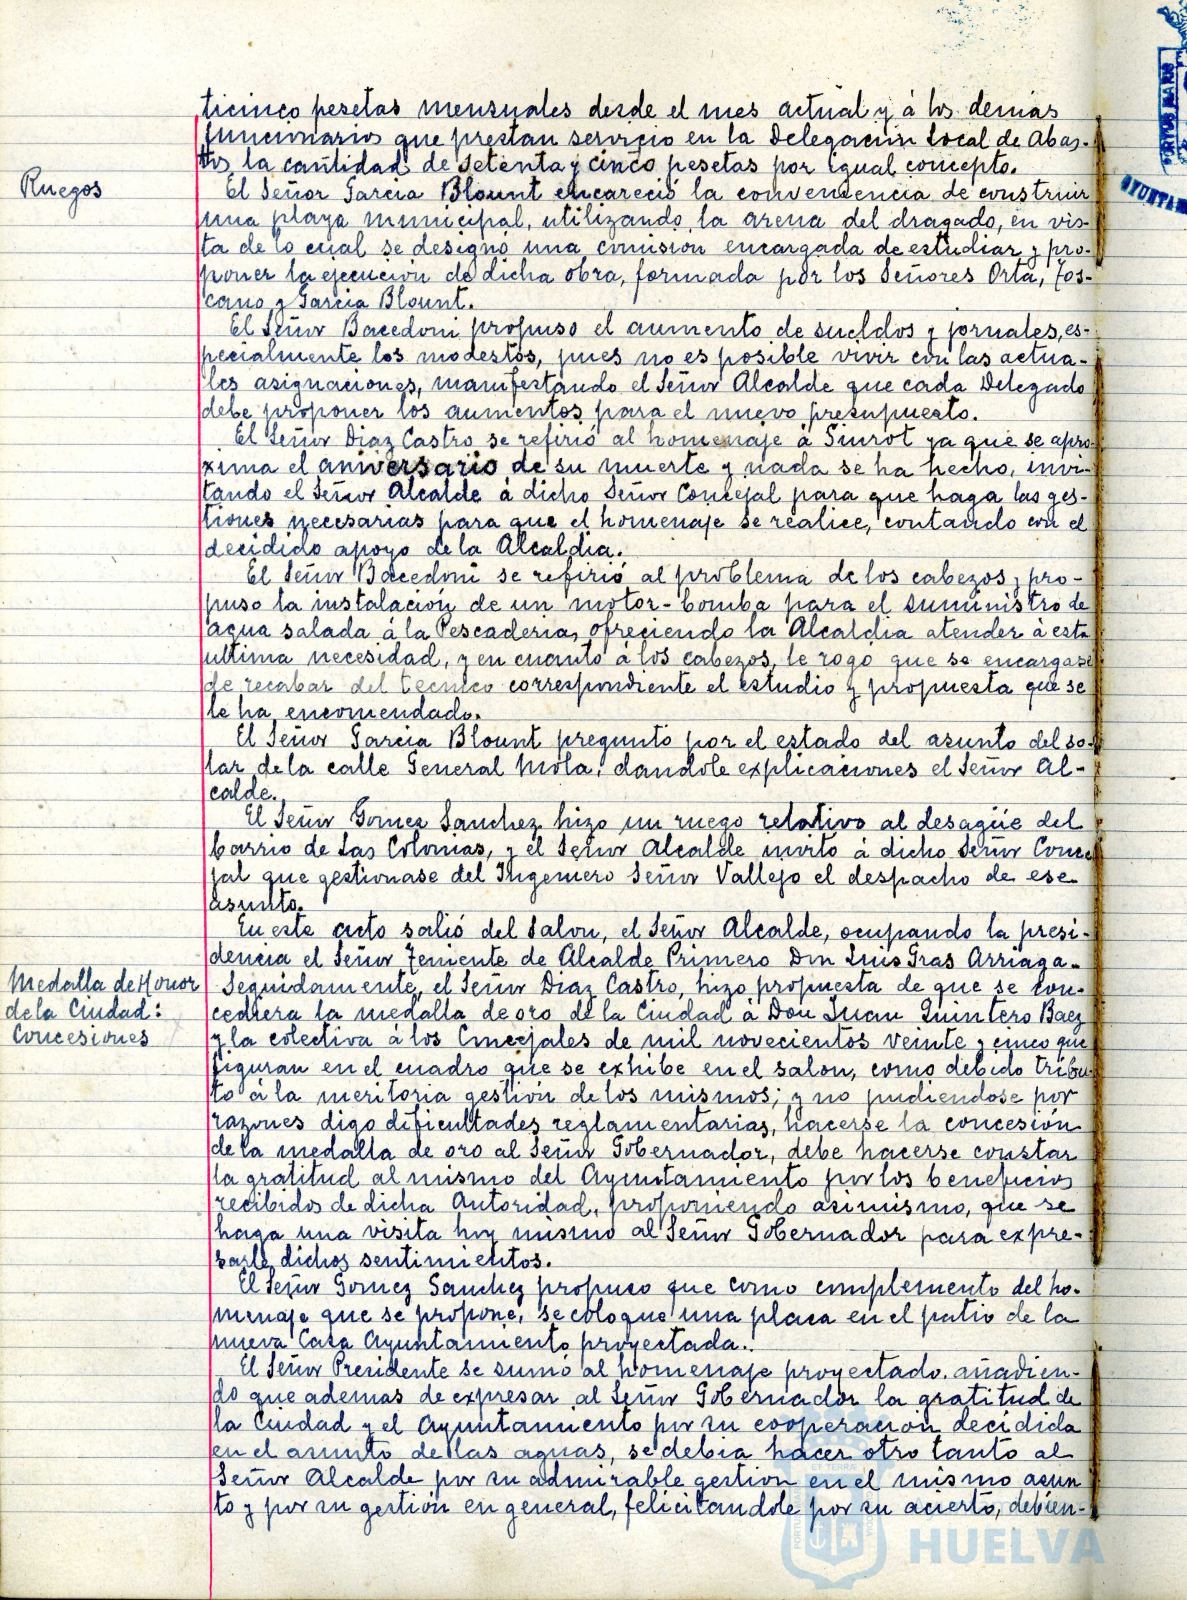 ticinco pesetas mensuales desde el mes actual y á los demás
funcionarios que prestan servicio en la Delegación Local de Abas-
tos, la cantidad de setenta y cinco pesetas por igual concepto.
Ruegos
El Señor Garcia Blount encareció la conveniencia de construir
una playa municipal, utilizando la arena del dragado, en vis-
ta de lo cual se designó una comisión encargada de estudiar y pro-
poner la ejecución de dicha obra, formada por los Señores Orta, Tos-
cano y Garcia Blount.
El Señor Bacedoni propuso el aumento de sueldos y jornales, es-
pecialmente los modestos, pues no es posible vivir con las actua-
les asignaciones, manifestando el Señor Alcalde que cada Delegado
debe proponer los aumentos para el nuevo presupuesto.
El Señor Diaz Castro se refirió al homenaje á Siurot ya que se apro-
xima el aniversario de su muerte y nada se ha hecho, invi-
tando el Señor Alcalde á dicho Señor Concejal para que haga las ges-
tiones necesarias para que el homenaje se realice, contando con el
decidido apoyo de la Alcaldia.
El Señor Bacedoni se refirió al problema de los cabezos y pro-
puso la instalación de un motor-bomba para el suministro de
agua salada á la Pescaderia, ofreciendo la Alcaldia atender á esta
ultima necesidad, y en cuanto á los cabezos, le rogo que se encargase
de recabar del tecnico correspondiente el estudio y propuesta que se
le ha encomendado.
El Señor Garcia Blount preguntó por el estado del asunto del so-
lar de la calle General Mola, dandole explicaciones el Señor Al-
calde.
El Señor Gomez Sanchez hizo un ruego relativo al desagüe del
barrio de Las Colonias, y el Señor Alcalde invitó á dicho Señor Conce
jal que gestionase del Ingeniero Señor Vallejo el despacho de ese
asunto.
En este acto salió del Salon, el Señor Alcalde, ocupando la presi-
dencia el Señor Teniente de Alcalde Primero Don Luis Gras Arriaga.-
Medalla de Honor
de la Ciudad:
Concesiones
Seguidamente, el Señor Diaz Castro, hizo propuesta de que se con-
cediera la medalla de oro de la Ciudad á Don Juan Quintero Baez
y la colectiva á los Concejales de mil novecientos veinte y cinco que
figuran en el cuadro que se exhibe en el salon, como debido tribu-
to á la meritoria gestión de los mismos; y no pudiendose por
razones digo dificultades reglamentarias, hacerse la concesión
de la medalla de oro al Señor Gobernador, debe hacerse constar
la gratitud al mismo del Ayuntamiento por los beneficios
recibidos de dicha Autoridad, proponiendo asimismo, que se
haga una visita hoy mismo al Señor Gobernador para expre-
sarle dichos sentimientos.
El Señor Gomez Sanchez propuso que como complemento del ho-
menaje que se propone, se coloque una placa en el patio de la
nueva Casa Ayuntamiento proyectada.
El Señor Presidente se sumó al homenaje proyectado, añadien-
do que ademas de expresar al Señor Gobernador la gratitud de
la Ciudad y el Ayuntamiento por su cooperación decidida
en el asunto de las aguas, se debia hacer otro tanto al
Señor Alcalde por su admirable gestion en el mismo asun
to y por su gestión en general, felicitandole por su acierto, debien-
HUELVA